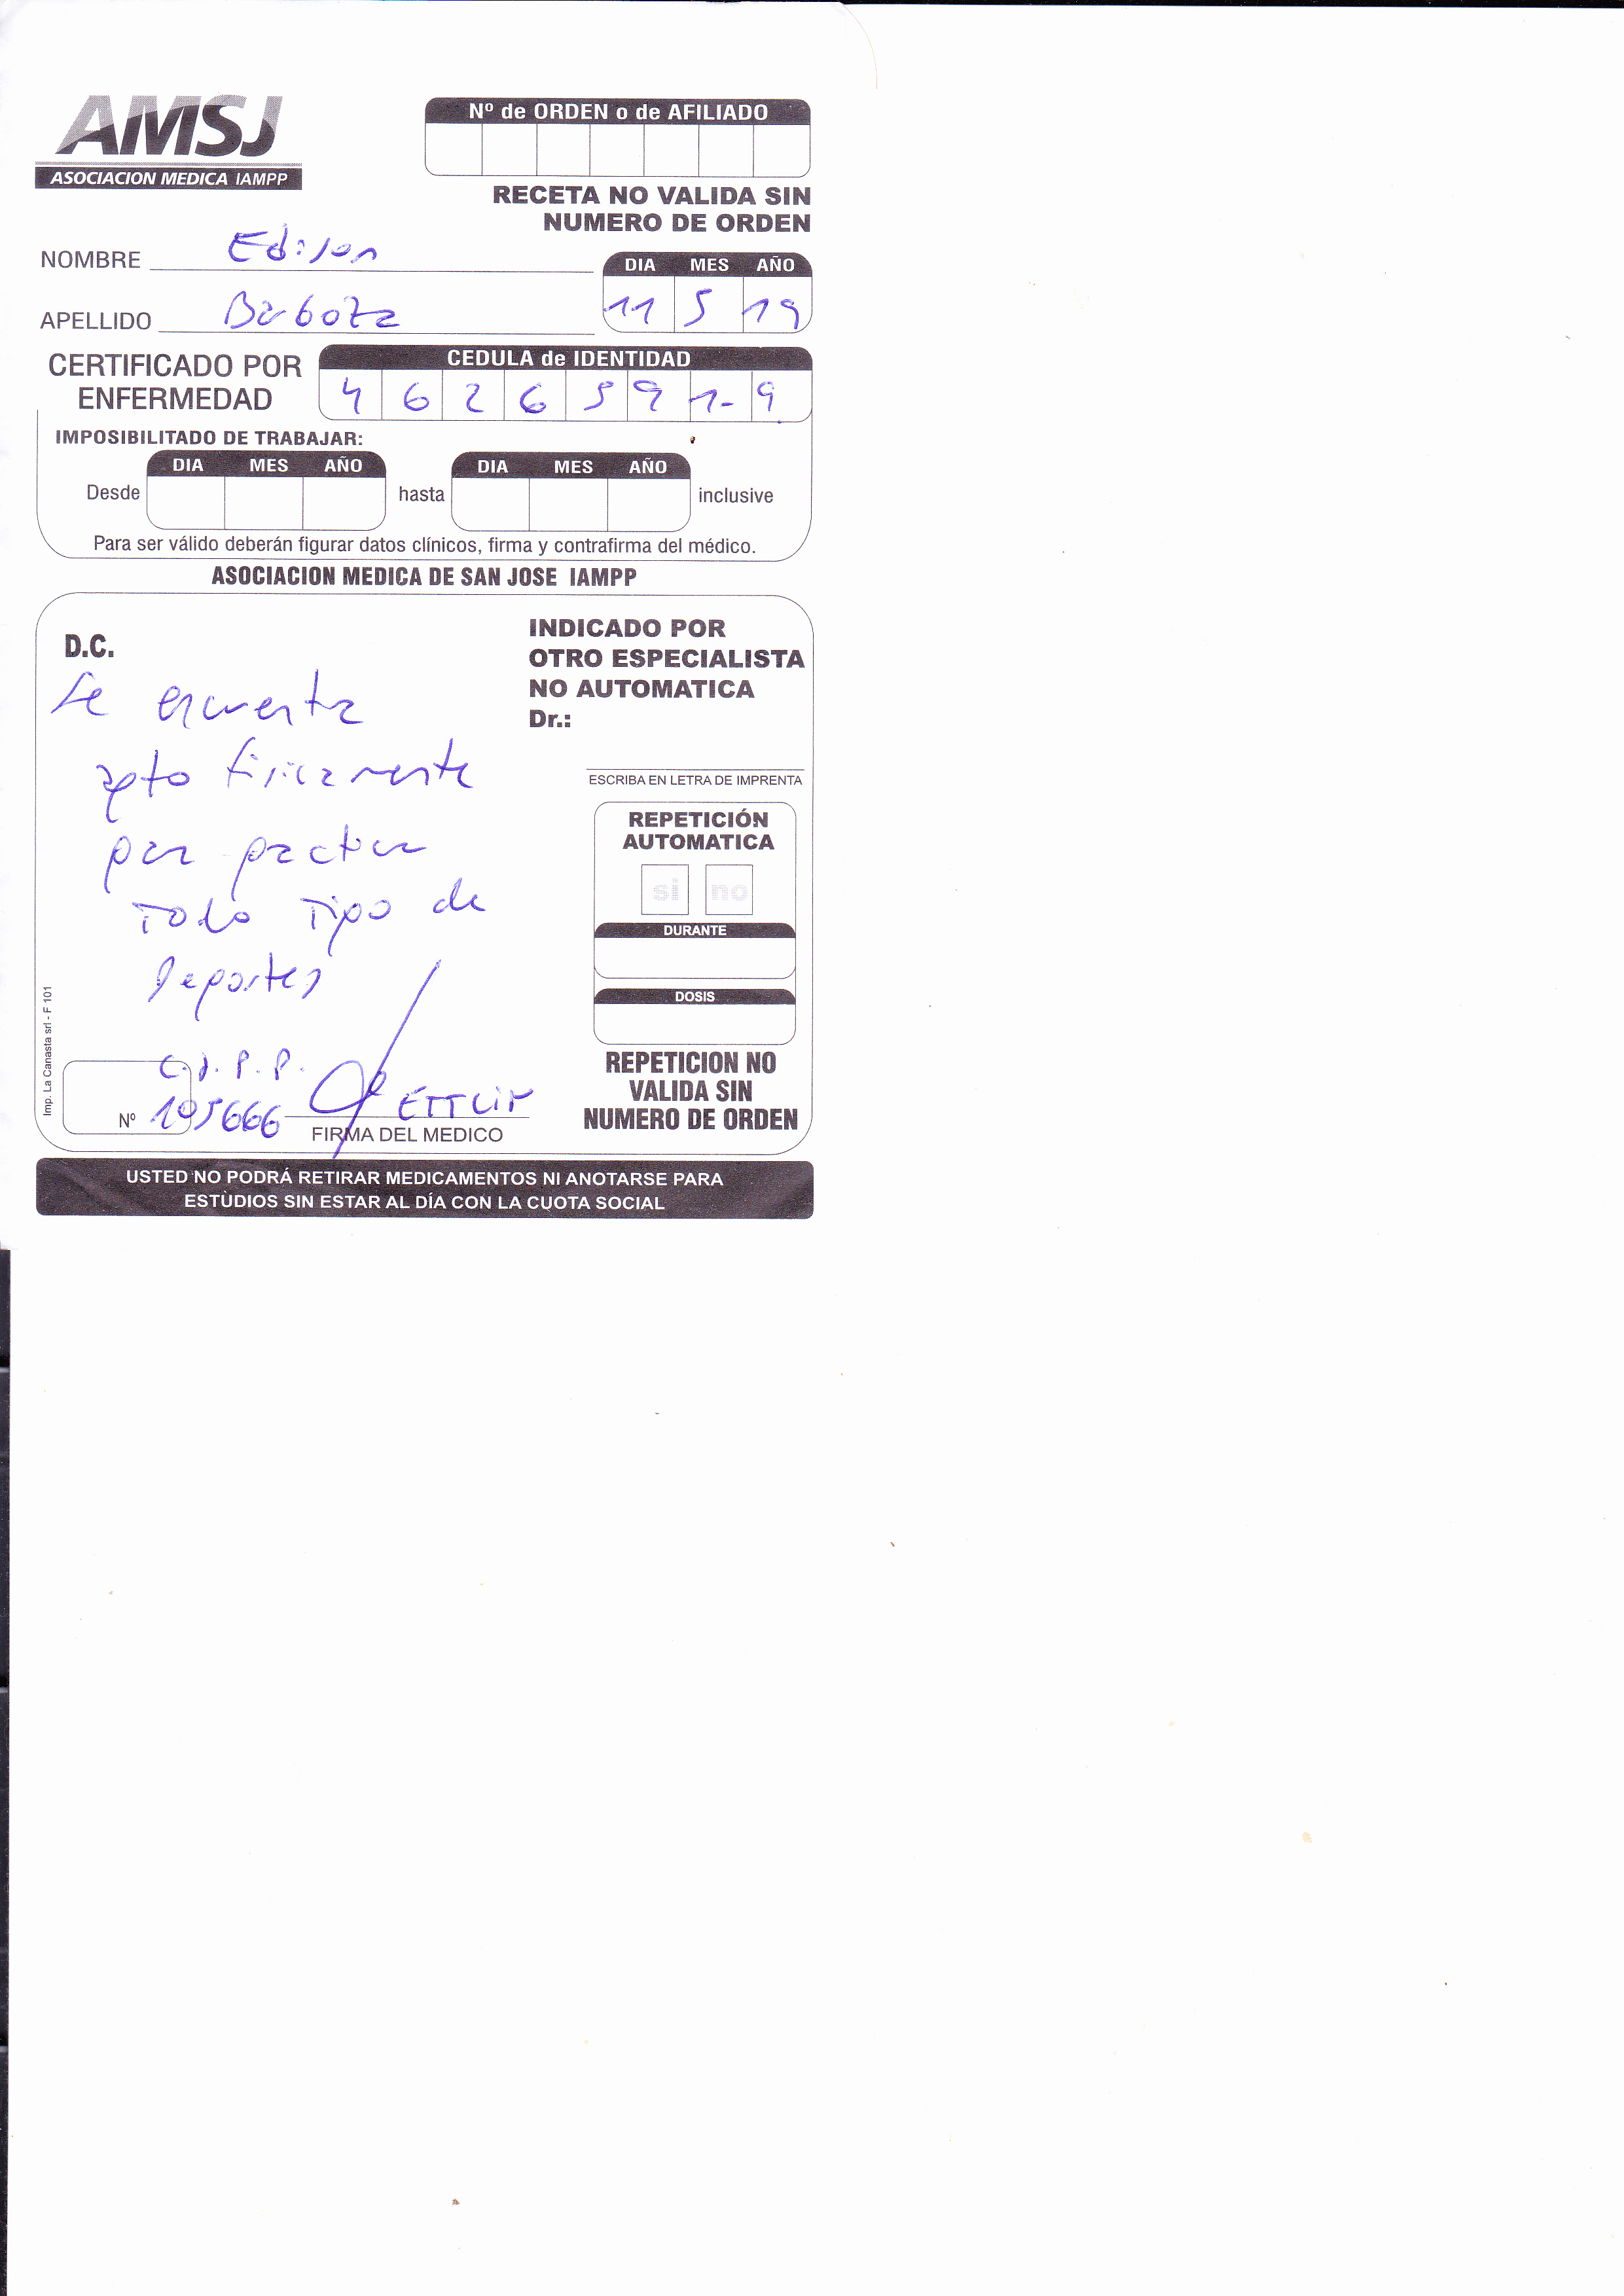 AMSJ
ASOCIACION MEDICA IAMPP
Nº de ORDEN o de AFILIADO
RECETA NO VALIDA SIN
NUMERO DE ORDEN
NOMBRE Edison
APELLIDO Barboza
DIA MES AÑO
11 5 19
CERTIFICADO POR
ENFERMEDAD
CEDULA de IDENTIDAD
4 6 2 6 5 9 1- 9
IMPOSIBILITADO DE TRABAJAR:
DIA MES AÑO DIA MES AÑO
Desde hasta inclusive
Para ser válido deberán figurar datos clínicos, firma y contrafirma del médico.
ASOCIACION MEDICA DE SAN JOSE IAMPP
D.C.
Se encuentra
apto fisicamente
para practicar
Todo Tipo de
deportes
C.J.P.P.
Nº 105666
ETTLIN
FIRMA DEL MEDICO
INDICADO POR
OTRO ESPECIALISTA
NO AUTOMATICA
Dr.:
ESCRIBA EN LETRA DE IMPRENTA
REPETICIÓN
AUTOMATICA
si no
DURANTE
DOSIS
REPETICION NO
VALIDA SIN
NUMERO DE ORDEN
Imp. La Canasta srl - F 101
USTED NO PODRÁ RETIRAR MEDICAMENTOS NI ANOTARSE PARA
ESTÙDIOS SIN ESTAR AL DÍA CON LA CUOTA SOCIAL